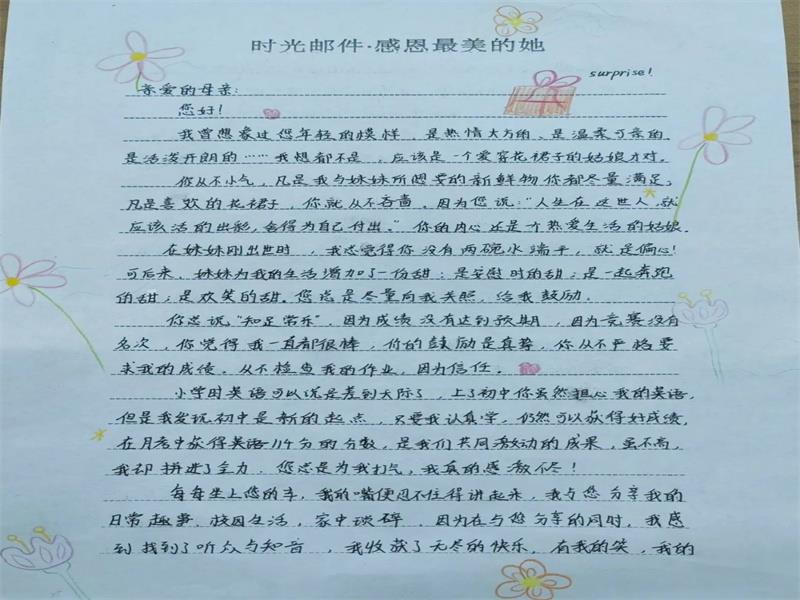 时光邮件·感恩最美的她
surprise!
亲爱的母亲:
您好!
我曾想象过您年轻的模样,是热情大方的、是温柔可亲的、
是活泼开朗的……我想都不是,应该是一个爱穿花裙子的姑娘才对。
你从不小气,凡是我与妹妹所想要的新鲜物你都尽量满足,
凡是喜欢的花裙子,你就从不吝啬。因为您说:“人生在这世人,就
应该活的出彩,舍得为自己付出。”你的内心还是个热爱生活的姑娘。
在妹妹刚出世时,我总觉得你没有两碗水端平,就是偏心!
可后来,妹妹为我的生活增加了一份甜:是安慰时的甜;是一起奔跑
的甜;是欢笑的甜。您总是尽量向我关照,给我鼓励。
你总说“知足常乐”,因为成绩没有达到预期,因为竞赛没有
名次,你觉得我一直都很棒,你的鼓励是真挚,你从不严格要
求我的成绩。从不检查我的作业,因为信任。
小学时英语可以说是差到天际了,上了初中你虽然担心我的英语,
但是我发现初中是新的起点,只要我认真学,仍然可以获得好成绩,
在月考中获得英语114分的分数,是我们共同激动的成果,虽不高,
我却拼进了全力.您总是为我打气,我真的感激不尽!
每每坐上您的车,我的嘴便忍不住得讲起来,我与您分享我的
日常趣事、校园生活,家中琐碎.因为在与您分享的同时,我感
到找到了听众与知音,我收获了无尽的快乐,有我的笑,我的